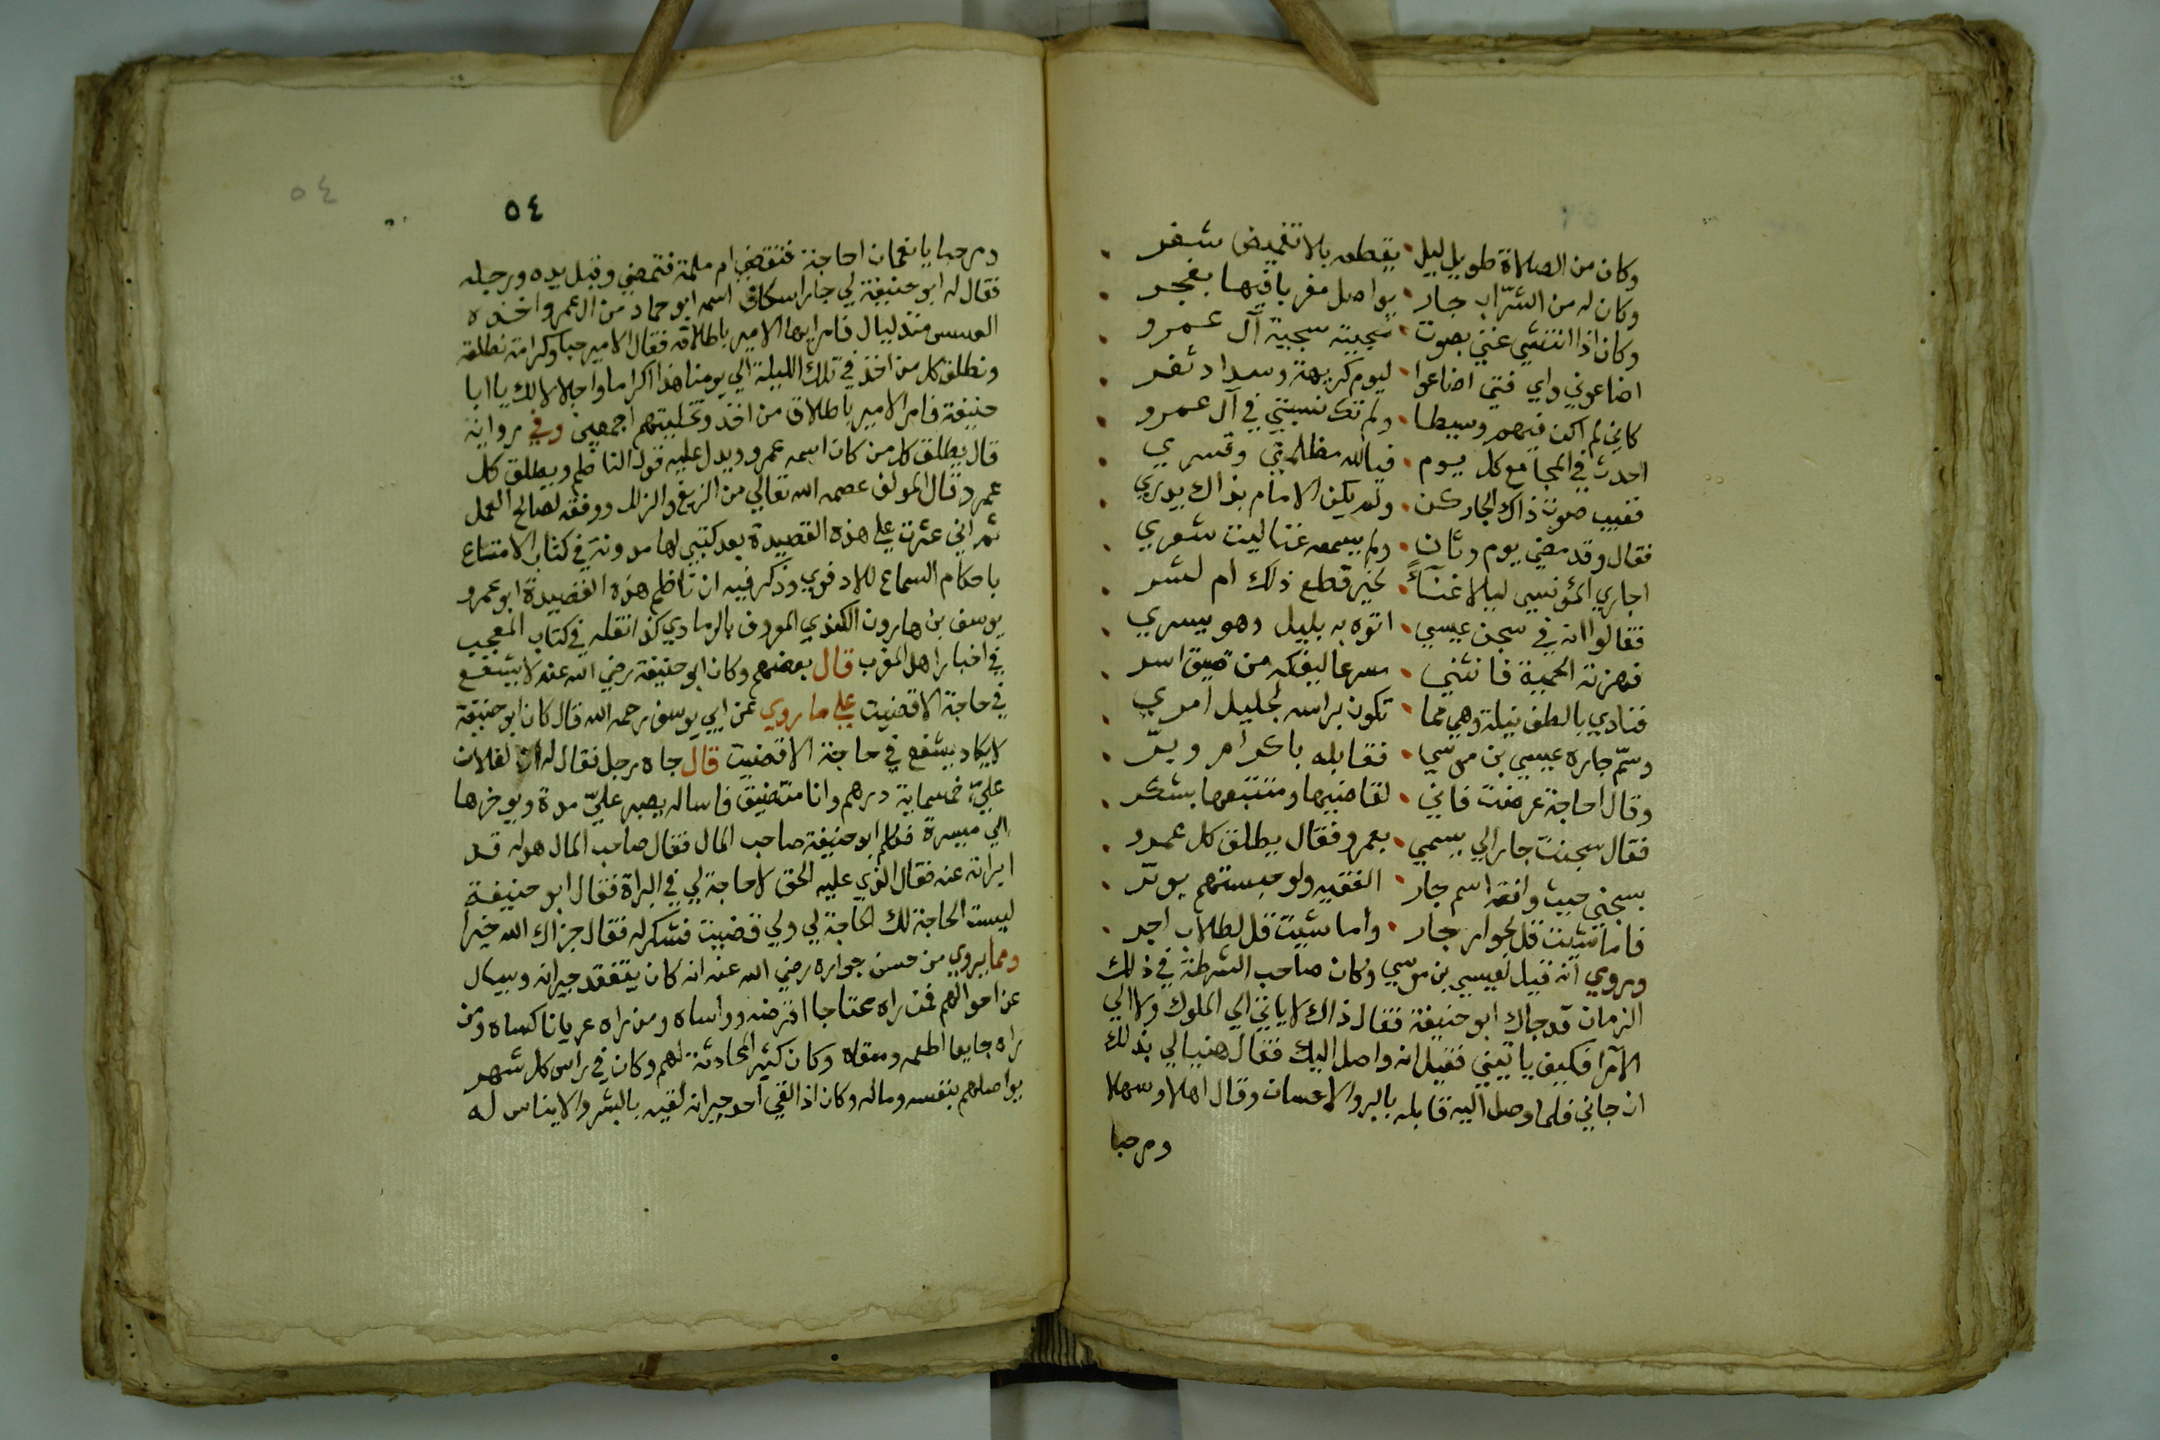 وكان من الصلاة طويل ليل • يقطعه بلا تغميض شفر
وكان له من الشرّاب جار • يواصل مغربا فيها بفجر
وكان اذا انتشي غني بصوت • سجيته سجية آل عمرو
اضاعوني واي فتي اضاعوا • ليوم كريهة وسداد ثغر
كاني لم اكن فيهم وسيطا • ولم تك نسبتي في آل عمرو
احدث في المجامع كل يوم • فيالله مظلمتي وقسري
فغيب صوت ذاك الجار سجن • ولم يكن الامام بذاك يدري
فقال وقد مضي يوم وثان • ولم يسمعه غنا ليت شعري
اجاري المؤنسي ليلا غنآءً • لخير قطع ذلك ام لشر
فقالوا انه في سجن عيسي • اتوه به بليل وهو يسري
فهزته الحمية فانثني • مسرعا ليفكه من ضيق اسر
فنادي بالطف نيلة وهي مما • تكون براسه لجليل امري
ويمّم جاره عيسي بن موسي • فقابله باكرام وبرّ
وقال احاجة عرضت فاني • لقاضيها ومتبعها بشكر
فقال سجنت جارا لي يسمي • بعمرو فقال يطلق كل عمرو
بسجني حيث وافقه اسم جار • الفقيه ولو حبستهم بوتر
فاما شيت قل لجوار جار • واما شيت قل لطلاب اجر
وروي انه قيل لعيسي بن موسي وكان صاحب الشرطة في ذلك
الزمان قد جاك ابو حنيفة فقال ذاك لا ياتي الي الملوك ولا الي
الامرا فكيف ياتيني فقيل انه واصل اليك فقال هنيا لي بذلك
ان جاني فلما وصل اليه قابله بالبر والاحسان وقال اهلا وسهلا
ومرحبا
٥٤
٥٤
ومرحبا يا نعمان احاجة فتقضي ام ملمة فتمضي وقبل يده ورجله
فقال له ابو حنيفة لي جار اسكاف اسمه ابو حماد من ال عمرو اخذه
العسس منذ ليال فامر ايها الامير باطلاقه فقال الامير حبا وكرامة نطلقه
ونطلق كل من اخذ في تلك الليلة الي يومنا هذا اكراما واجلالا لك يا ابا
حنيفة فامر الامير باطلاق من اخذ وتخليتهم اجمعين وفي رواية
قال يطلق كل من كان اسمه عمرو ويدل عليه قول الناظم ويطلق كل
عمرو قال المولف عصمه الله تعالي من الزيغ والزلل ووفقه لصالح العمل
ثم اني عثرت علي هذه القصيدة بعد كتبي لها مدونة في كتاب الامتاع
باحكام السماع للادفوي وذكر فيه ان ناظم هذه القصيدة ابو عمرو
يوسف بن هارون الكندي المعروف بالرمادي كذا نقله في كتاب المعجب
في اخبار اهل المغرب قال بعضهم وكان ابو حنيفة رضي الله عنه لا يشفع
في حاجة الا قضيت علي ما روي عن ابي يوسف رحمه الله قال كان ابو حنيفة
لا يكاد يشفع في حاجة الا قضيت قال جاه رجل فقال له ان لفلان
عليّ خمسماية درهم وانا متضيق فاساله يصبر عليّ مدة ويوخرها
الي ميسرة فكلم ابو حنيفة صاحب المال فقال صاحب المال هو له قد
ابراته عنه فقال الذي عليه الحق لا حاجة لي في البراة فقال ابو حنيفة
ليست الحاجة لك الحاجة لي ولي قضيت فشكر له فقال جزاك الله خيرا
ومما يروي من حسن جواره رضي الله عنه انه كان يتفقد جيرانه ويسال
عن احوالهم فمن راه محتاجا اقرضه وواساه ومن راه عريانا كساه ومن
راه جايعا اطعمه وسقاه وكان كثير المحادثة لهم وكان في راس كل شهر
يواصلهم بنفسه وماله وكان اذا لقي احد جيرانه لقيه بالبشر والايناس له